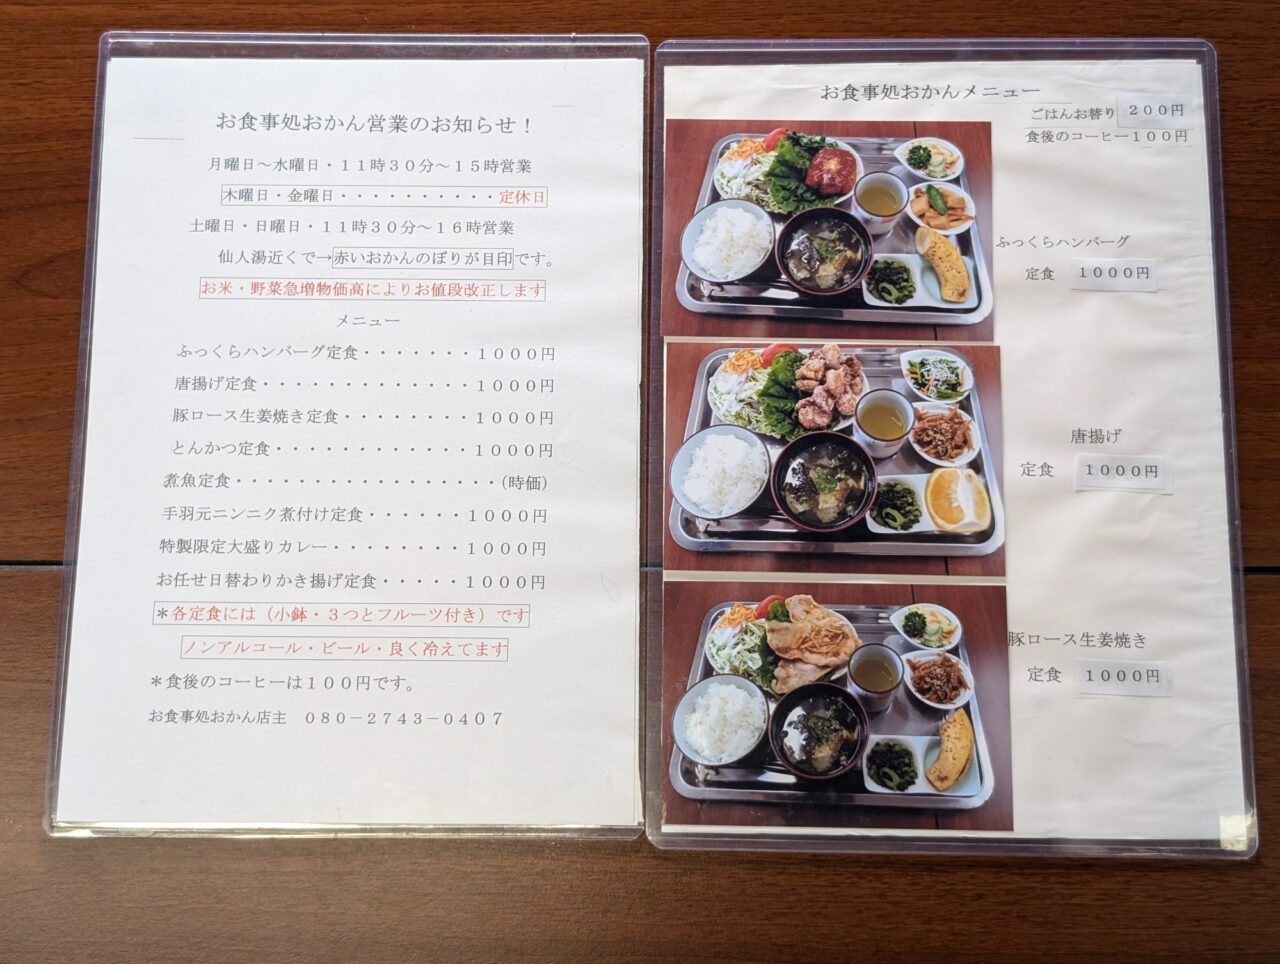 お食事処おかん営業のお知らせ！
月曜日～水曜日・１１時３０分～１５時営業
木曜日・金曜日・・・・・・・・・・定休日
土曜日・日曜日・１１時３０分～１６時営業
仙人湯近くで→赤いおかんのぼりが目印です。
お米・野菜急増物価高によりお値段改正します
メニュー
ふっくらハンバーグ定食・・・・・・・１０００円
唐揚げ定食・・・・・・・・・・・・・１０００円
豚ロース生姜焼き定食・・・・・・・・１０００円
とんかつ定食・・・・・・・・・・・・１０００円
煮魚定食・・・・・・・・・・・・・・・・（時価）
手羽元ニンニク煮付け定食・・・・・・１０００円
特製限定大盛りカレー・・・・・・・・１０００円
お任せ日替わりかき揚げ定食・・・・・１０００円
＊各定食には（小鉢・３つとフルーツ付き）です
ノンアルコール・ビール・良く冷えてます
＊食後のコーヒーは１００円です。
お食事処おかん店主　０８０－２７４３－０４０７
お食事処おかんメニュー
ごはんお替り ２００円
食後のコーヒー１００円
ふっくらハンバーグ
定食 １０００円
唐揚げ
定食 １０００円
豚ロース生姜焼き
定食 １０００円